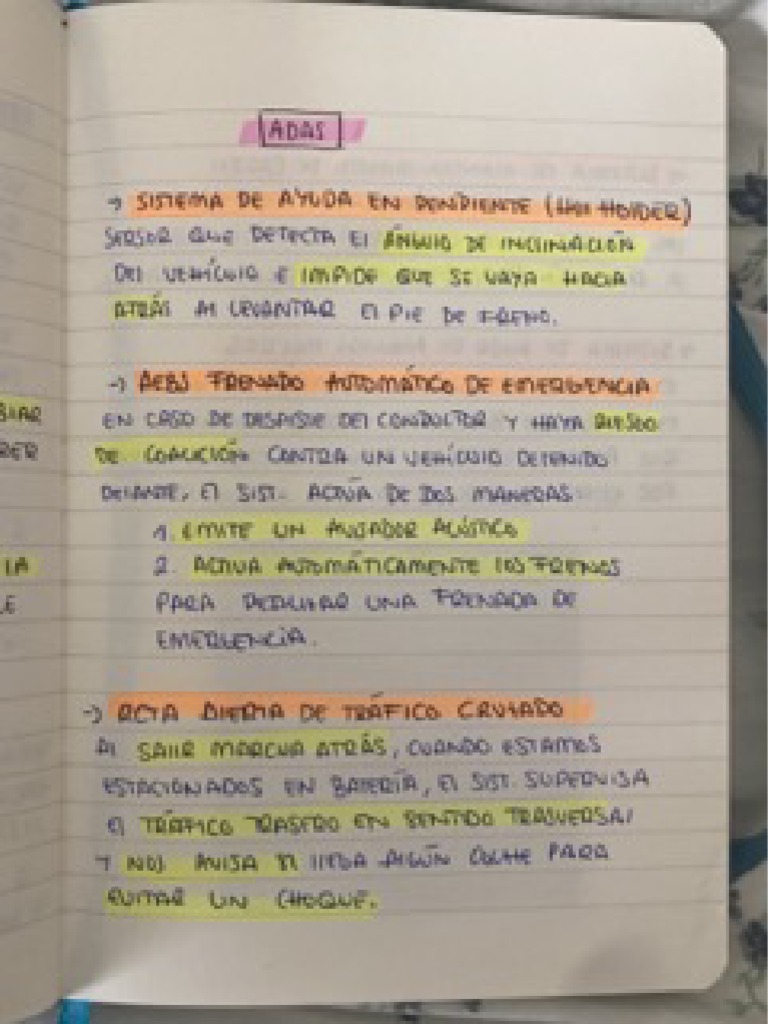 ADAS
→ SISTEMA DE AYUDA EN PENDIENTE (HILL HOLDER)
SENSOR QUE DETECTA El ÁNGULO DE INCLINACIÓN
DEL VEHÍCULO E IMPIDE QUE SE VAYA HACIA
ATRÁS Al LEVANTAR El PIE DE FRENO.
→ AEBS FRENADO AUTOMÁTICO DE EMERGENCIA
EN CASO DE DESPISTE DEL CONDUCTOR Y HAYA RIESGO
DE COALICIÓN CONTRA UN VEHÍCULO DETENIDO
DELANTE, El SIST. ACTÚA DE DOS MANERAS
1. EMITE UN AVISADOR ACÚSTICO
2. ACTIVA AUTOMÁTICAMENTE LOS FRENOS
PARA REALIZAR UNA FRENADA DE
EMERGENCIA.
→ RCTA ALERTA DE TRÁFICO CRUZADO
Al SALIR MARCHA ATRÁS, CUANDO ESTAMOS
ESTACIONADOS EN BATERÍA, El SIST. SUPERVISA
El TRÁFICO TRASERO EN SENTIDO TRASVERSAL
Y NOS AVISA SI LLEGA ALGÚN COCHE PARA
EVITAR UN CHOQUE.